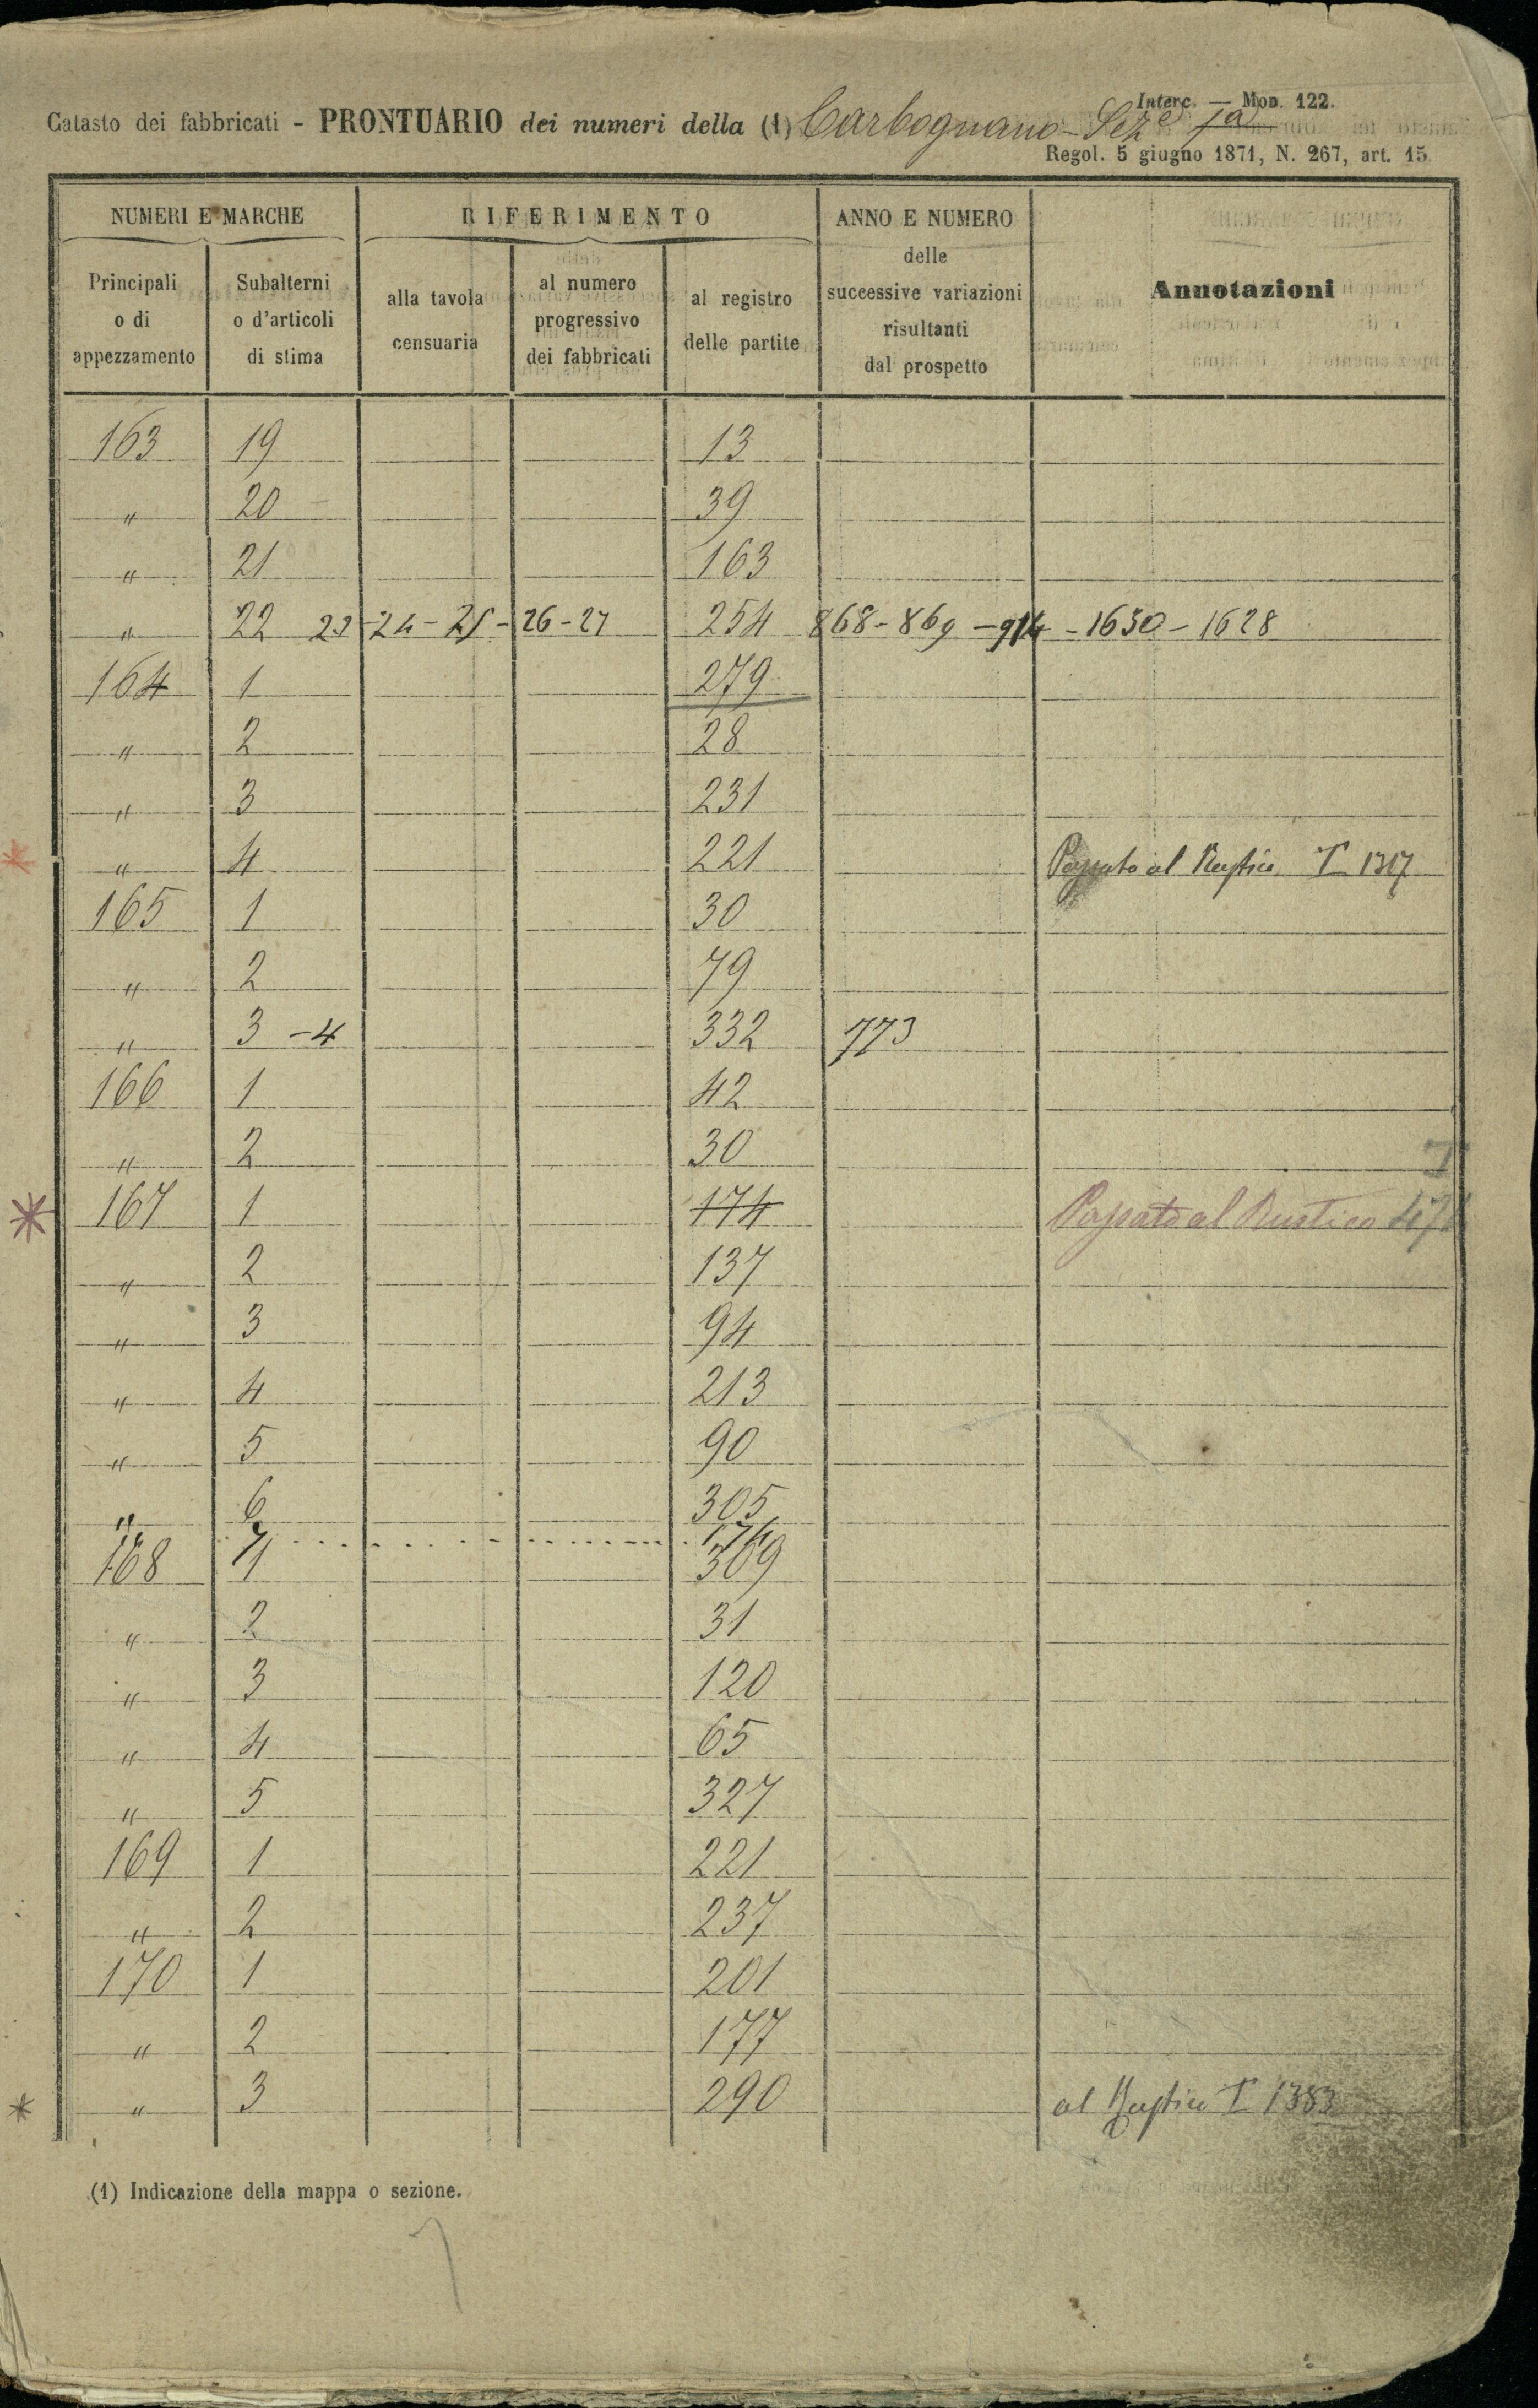 Interc. — Mod. 122.
Catasto dei fabbricati - PRONTUARIO dei numeri della (1) Carbognano - Sez.e 1a
Regol. 5 giugno 1871, N. 267, art. 15.
NUMERI E MARCHE RIFERIMENTO ANNO E NUMERO delle successive variazioni risultanti dal prospetto Annotazioni
Principali o di appezzamento Subalterni o d'articoli di stima alla tavola censuaria al numero progressivo dei fabbricati al registro delle partite
163 19 13
" 20 39
" 21 163
" 22 23-24-25-26-27 254 868-869-914-1630-1628
164 1 279
" 2 28
" 3 231
* " 4 221 Passato al Rustico T 1317
165 1 30
" 2 79
" 3-4 332 773
166 1 42
" 2 30 T
* 167 1 174 Passato al Rustico
" 2 137
" 3 94
" 4 213
" 5 90
" 6 305
" 7 174
168 1 309
" 2 31
" 3 120
" 4 65
" 5 327
169 1 221
" 2 237
170 1 201
" 2 177
* " 3 290 al Rustico T 1383
(1) Indicazione della mappa o sezione.